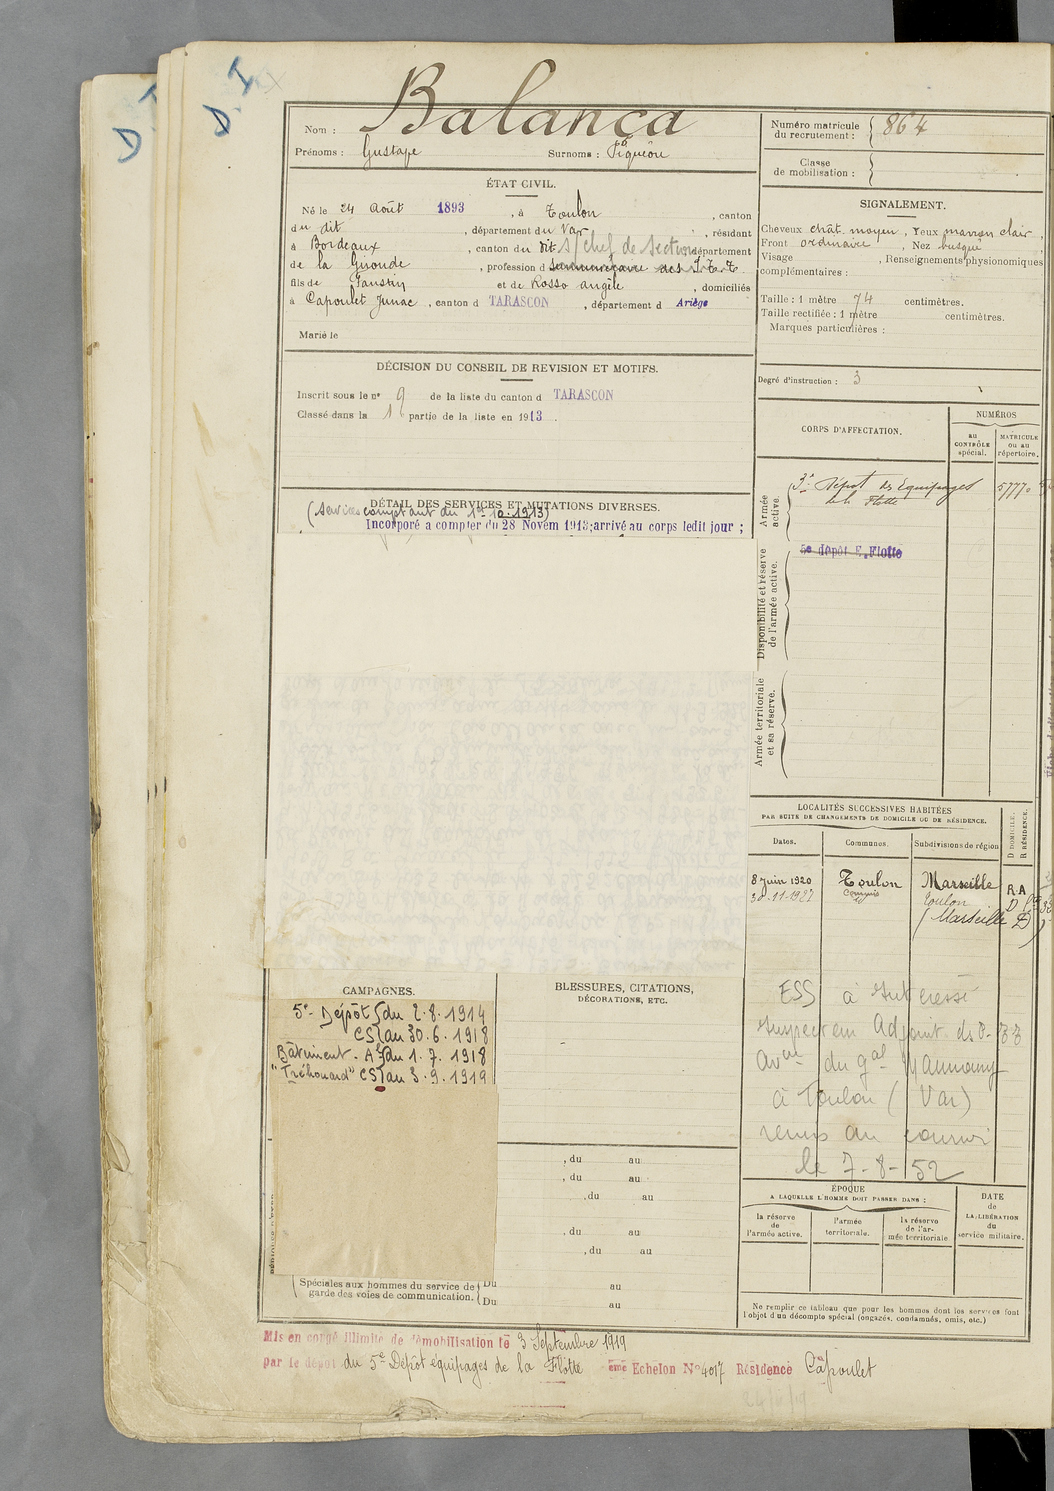 D. I
D. I
Balança
Nom :
Prénoms : Gustave Surnoms : Piqueou
ÉTAT CIVIL.
Né le 24 Août 1893, à Toulon, canton
du dit, département du Var, résidant
à Bordeaux, canton du dit s/chef de section département
de la Gironde, profession d surnuméraire des P.T.T.
fils de Faustin et de Rosso Angèle, domiciliés
à Capoulet Junac, canton d TARASCON, département d Ariège
Marié le
DÉCISION DU CONSEIL DE REVISION ET MOTIFS.
Inscrit sous le nº 9 de la liste du canton d TARASCON
Classé dans la 1 partie de la liste en 1913.
DÉTAIL DES SERVICES ET MUTATIONS DIVERSES.
(Services comptant du 1er.10.1913)
Incorporé a compter du 28 Novem 1913; arrivé au corps ledit jour ;
CAMPAGNES.
5e Dépôt { du 2.8.1914
CS { au 30.6.1918
Bâtiment. A { du 1.7.1918
"Tréhouart" CS { au 3.9.1919
Spéciales aux hommes du service de
garde des voies de communication.
Du au
Du au
BLESSURES, CITATIONS,
DÉCORATIONS, ETC.
, du au
, du au
, du au
, du au
, du au
Numéro matricule
du recrutement : 864
Classe
de mobilisation :
SIGNALEMENT.
Cheveux chât. moyen, Yeux marron clair,
Front ordinaire, Nez busqué
Visage , Renseignements physionomiques
complémentaires :
Taille : 1 mètre 74 centimètres.
Taille rectifiée : 1 mètre centimètres.
Marques particulières :
Degré d'instruction : 3
CORPS D'AFFECTATION.
NUMÉROS
au
CONTRÔLE
spécial.
MATRICULE
ou au
répertoire.
Armée
active.
3e Dépôt des Équipages
de la Flotte
5777
5e dépôt E. Flotte
Disponibilité et réserve
de l'armée active.
Armée territoriale
et sa réserve.
LOCALITÉS SUCCESSIVES HABITÉES
PAR SUITE DE CHANGEMENTS DE DOMICILE OU DE RÉSIDENCE.
Dates. Communes. Subdivisions de région
D DOMICILE.
R RÉSIDENCE.
8 Juin 1920 Toulon Marseille R.A
30-11-1927 Toulon D
(Marseille D)
ESS à Intéressé
Inspecteur Adjoint des P.T.T
Avue du gal Maunoury
à Toulon (Var)
revenu au
le 7-8-52
ÉPOQUE
A LAQUELLE L'HOMME DOIT PASSER DANS :
la réserve
de
l'armée active.
l'armée
territoriale.
la réserve
de l'ar-
mée territoriale
DATE
de
LA LIBÉRATION
du
service militaire.
Ne remplir ce tableau que pour les hommes dont les services font
l'objet d'un décompte spécial (engagés, condamnés, omis, etc.)
Mis en congé illimité de démobilisation le 3 Septembre 1919
par le dépot du 5e Dépôt équipages de la Flotte eme Echelon Nº 4017 Résidence Capoulet